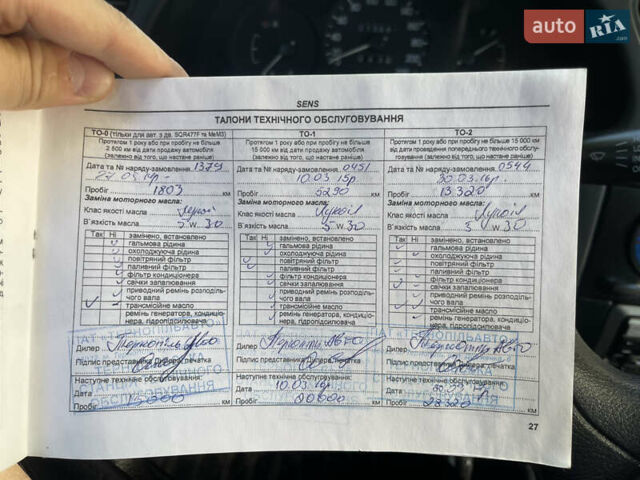 auto RIA.com
SENS
ТАЛОНИ ТЕХНІЧНОГО ОБСЛУГОВУВАННЯ
ТО-0 (тільки для авт. з дв. SQR477F та МеМЗ)
Протягом 1 року або при пробігу не більше
2 500 км від дати продажу автомобіля
(залежно від того, що настане раніше)
Дата та № наряду-замовлення 1379
Пробіг 1803 км
Заміна моторного масла:
Клас якості масла
В`язкість масла 5 w 30
Так Ні замінено, встановлено
гальмова рідина
охолоджуюча рідина
повітряний фільтр
паливний фільтр
фільтр кондиціонера
свічки запалювання
приводний ремінь розподіль-
чого вала
трансмісійне масло
ремінь генератора, кондиціо-
нера, гідропідсилювача
Дилер
Підпис представника Дилера, печатка
Наступне технічне обслуговування:
Дата
Пробіг км
ТО-1
Протягом 1 року або при пробігу не більше
15 000 км від дати продажу автомобіля
(залежно від того, що настане раніше)
Дата та № наряду-замовлення 0451
10.03.15р
Пробіг 5290 км
Заміна моторного масла:
Клас якості масла Лукоіл
В`язкість масла 5 W 30
Так Ні замінено, встановлено
гальмова рідина
охолоджуюча рідина
повітряний фільтр
паливний фільтр
фільтр кондиціонера
свічки запалювання
приводний ремінь розподіль-
чого вала
трансмісійне масло
ремінь генератора, кондиціо-
нера, гідропідсилювача
Дилер
Підпис представника Дилера, печатка
Наступне технічне обслуговування:
Дата 10.03.16р
Пробіг 20000 км
ТО-2
Протягом 1 року або при пробігу не більше 15 000 км
від дати проведення попереднього технічного обслу-
говування (залежно від того, що настане раніше)
Дата та № наряду-замовлення 0544
Пробіг 13320 км
Заміна моторного масла:
Клас якості масла Лукоіл
В`язкість масла 5 W 30
Так Ні замінено, встановлено
гальмова рідина
охолоджуюча рідина
повітряний фільтр
паливний фільтр
фільтр кондиціонера
свічки запалювання
приводний ремінь розподіль-
чого вала
трансмісійне масло
ремінь генератора, кондиціо-
нера, гідропідсилювача
Дилер
Підпис представника Дилера, печатка
Наступне технічне обслуговування:
Дата
Пробіг 28320 км
27